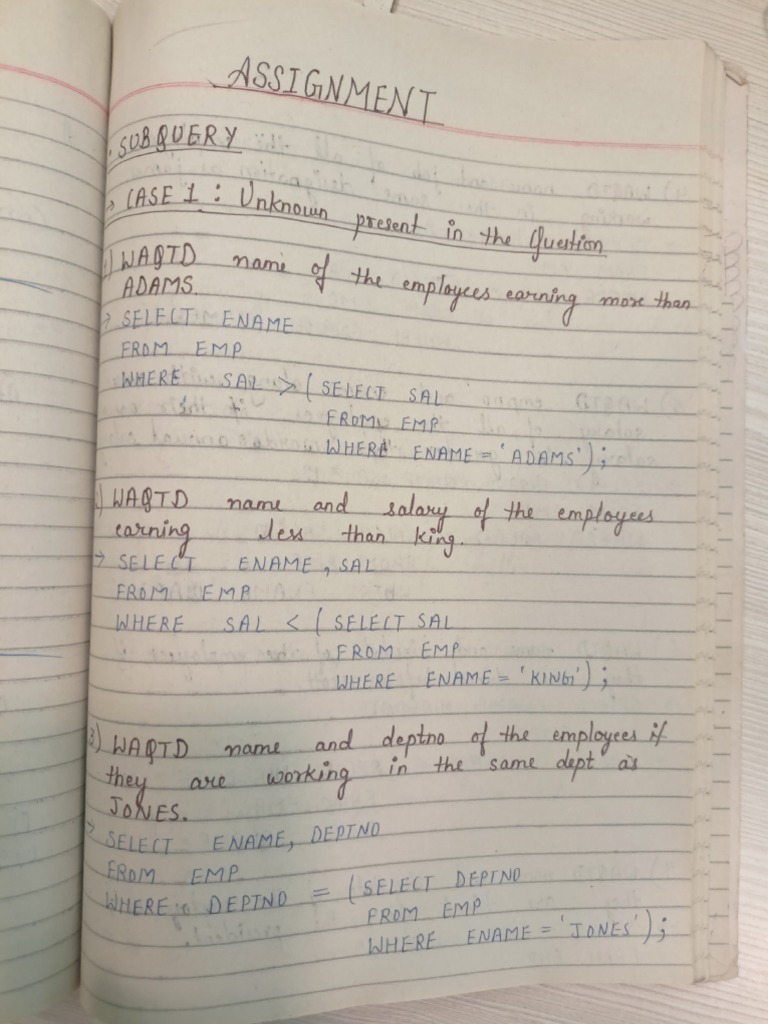 ASSIGNMENT
. SUBQUERY
→ CASE 1 : Unknown present in the Question
1) WAQTD name of the employees earning more than
ADAMS.
→ SELECT ENAME
FROM EMP
WHERE SAL > ( SELECT SAL
FROM EMP
WHERE ENAME = 'ADAMS' ) ;
2) WAQTD name and salary of the employees
earning less than king.
→ SELECT ENAME , SAL
FROM EMP
WHERE SAL < ( SELECT SAL
FROM EMP
WHERE ENAME = 'KING' ) ;
3) WAQTD name and deptno of the employees if
they are working in the same dept as
JONES.
→ SELECT ENAME, DEPTNO
FROM EMP
WHERE DEPTNO = ( SELECT DEPTNO
FROM EMP
WHERE ENAME = 'JONES' ) ;